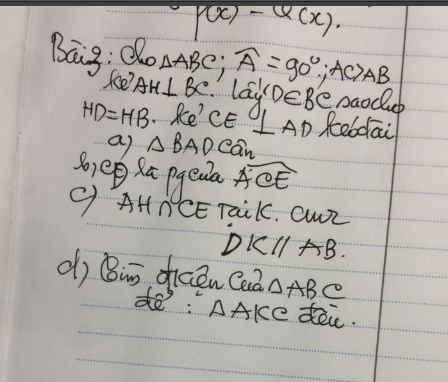 P(x) - Q(x).
Bài 3: Cho △ABC; Â = 90°; AC>AB
kẻ AH ⊥ BC. Lấy D∈BC sao cho
HD=HB. kẻ CE ⊥ AD kéo dài
a) △BAD cân
b, CD là pg của ACE
c) AH ∩ CE Tại K. cmr
DK // AB.
d) Tìm đkiện của △ABC
để : △AKC đều.